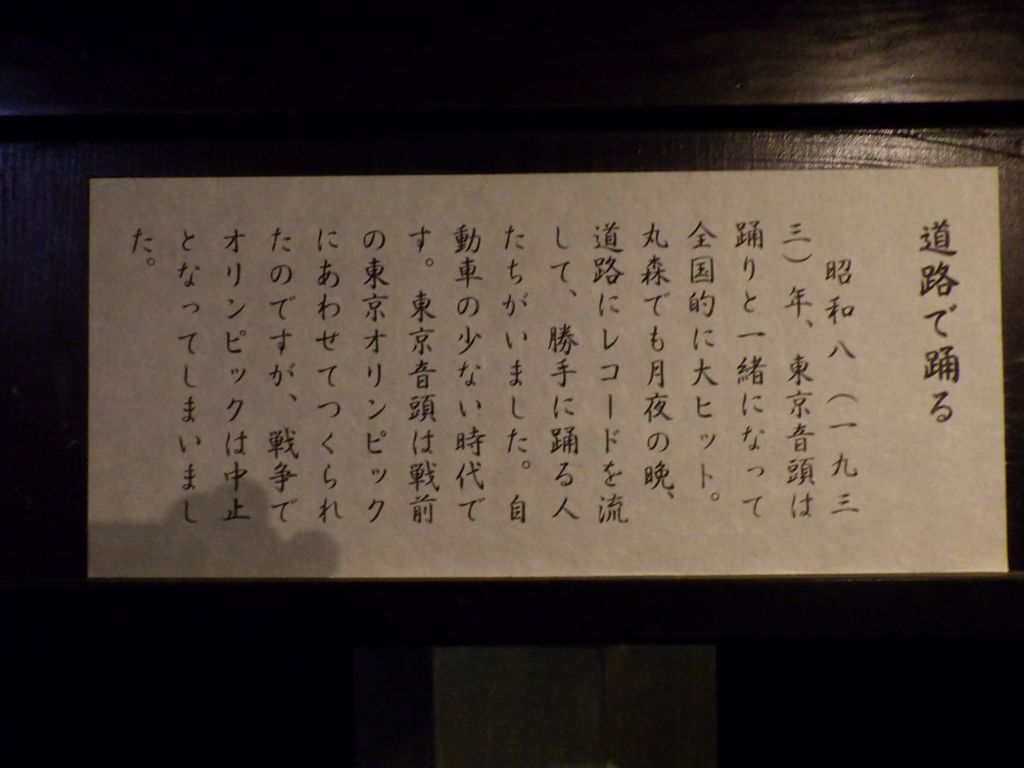 道路で踊る
昭和八（一九三
三）年、東京音頭は
踊りと一緒になって
全国的に大ヒット。
丸森でも月夜の晩、
道路にレコードを流
して、勝手に踊る人
たちがいました。自
動車の少ない時代で
す。東京音頭は戦前
の東京オリンピック
にあわせてつくられ
たのですが、戦争で
オリンピックは中止
となってしまいまし
た。